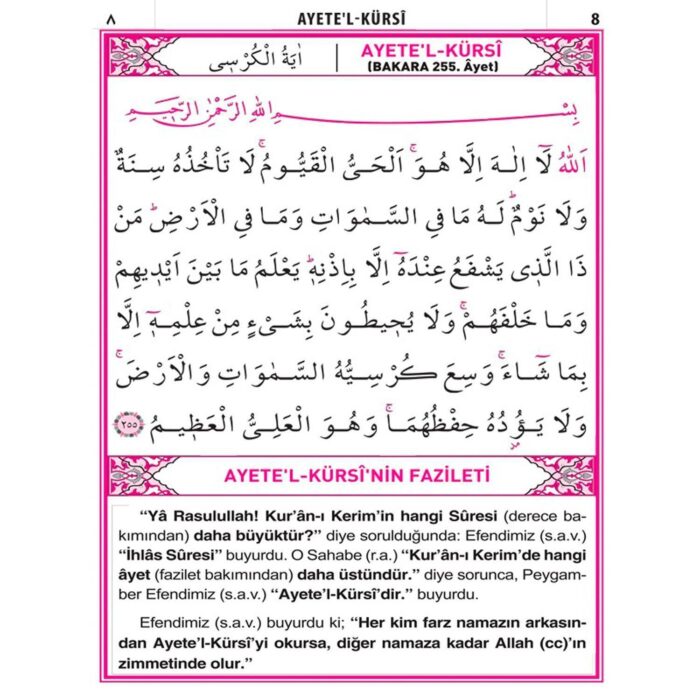 ٨ AYETE'L-KÜRSÎ 8
اٰيَةُ الْكُرْسِي
AYETE'L-KÜRSÎ
(BAKARA 255. Âyet)
بِسْــــــمِ اللّٰهِ الرَّحْمٰنِ الرَّح۪يمِ
اَللّٰهُ لَٓا اِلٰهَ اِلَّا هُوَۚ اَلْحَيُّ الْقَيُّومُۚ لَا تَأْخُذُهُ سِنَةٌ
وَلَا نَوْمٌۜ لَهُ مَا فِي السَّمٰوَاتِ وَمَا فِي الْاَرْضِۜ مَنْ
ذَا الَّذ۪ي يَشْفَعُ عِنْدَهُٓ اِلَّا بِاِذْنِه۪ۜ يَعْلَمُ مَا بَيْنَ اَيْد۪يهِمْ
وَمَا خَلْفَهُمْۚ وَلَا يُح۪يطُونَ بِشَيْءٍ مِنْ عِلْمِه۪ٓ اِلَّا
بِمَا شَٓاءَۚ وَسِعَ كُرْسِيُّهُ السَّمٰوَاتِ وَالْاَرْضَۚ
وَلَا يَؤُ۫دُهُ حِفْظُهُمَاۚ وَهُوَ الْعَلِيُّ الْعَظ۪يمُ ٢٥٥
AYETE'L-KÜRSÎ'NİN FAZİLETİ
“Yâ Rasulullah! Kur’ân-ı Kerim’in hangi Sûresi (derece ba-
kımından) daha büyüktür?” diye sorulduğunda: Efendimiz (s.a.v.)
“İhlâs Sûresi” buyurdu. O Sahabe (r.a.) “Kur’ân-ı Kerim’de hangi
âyet (fazilet bakımından) daha üstündür.” diye sorunca, Peygam-
ber Efendimiz (s.a.v.) “Ayete’l-Kürsî’dir.” buyurdu.
Efendimiz (s.a.v.) buyurdu ki; “Her kim farz namazın arkasın-
dan Ayete’l-Kürsî’yi okursa, diğer namaza kadar Allah (cc)’ın
zimmetinde olur.”